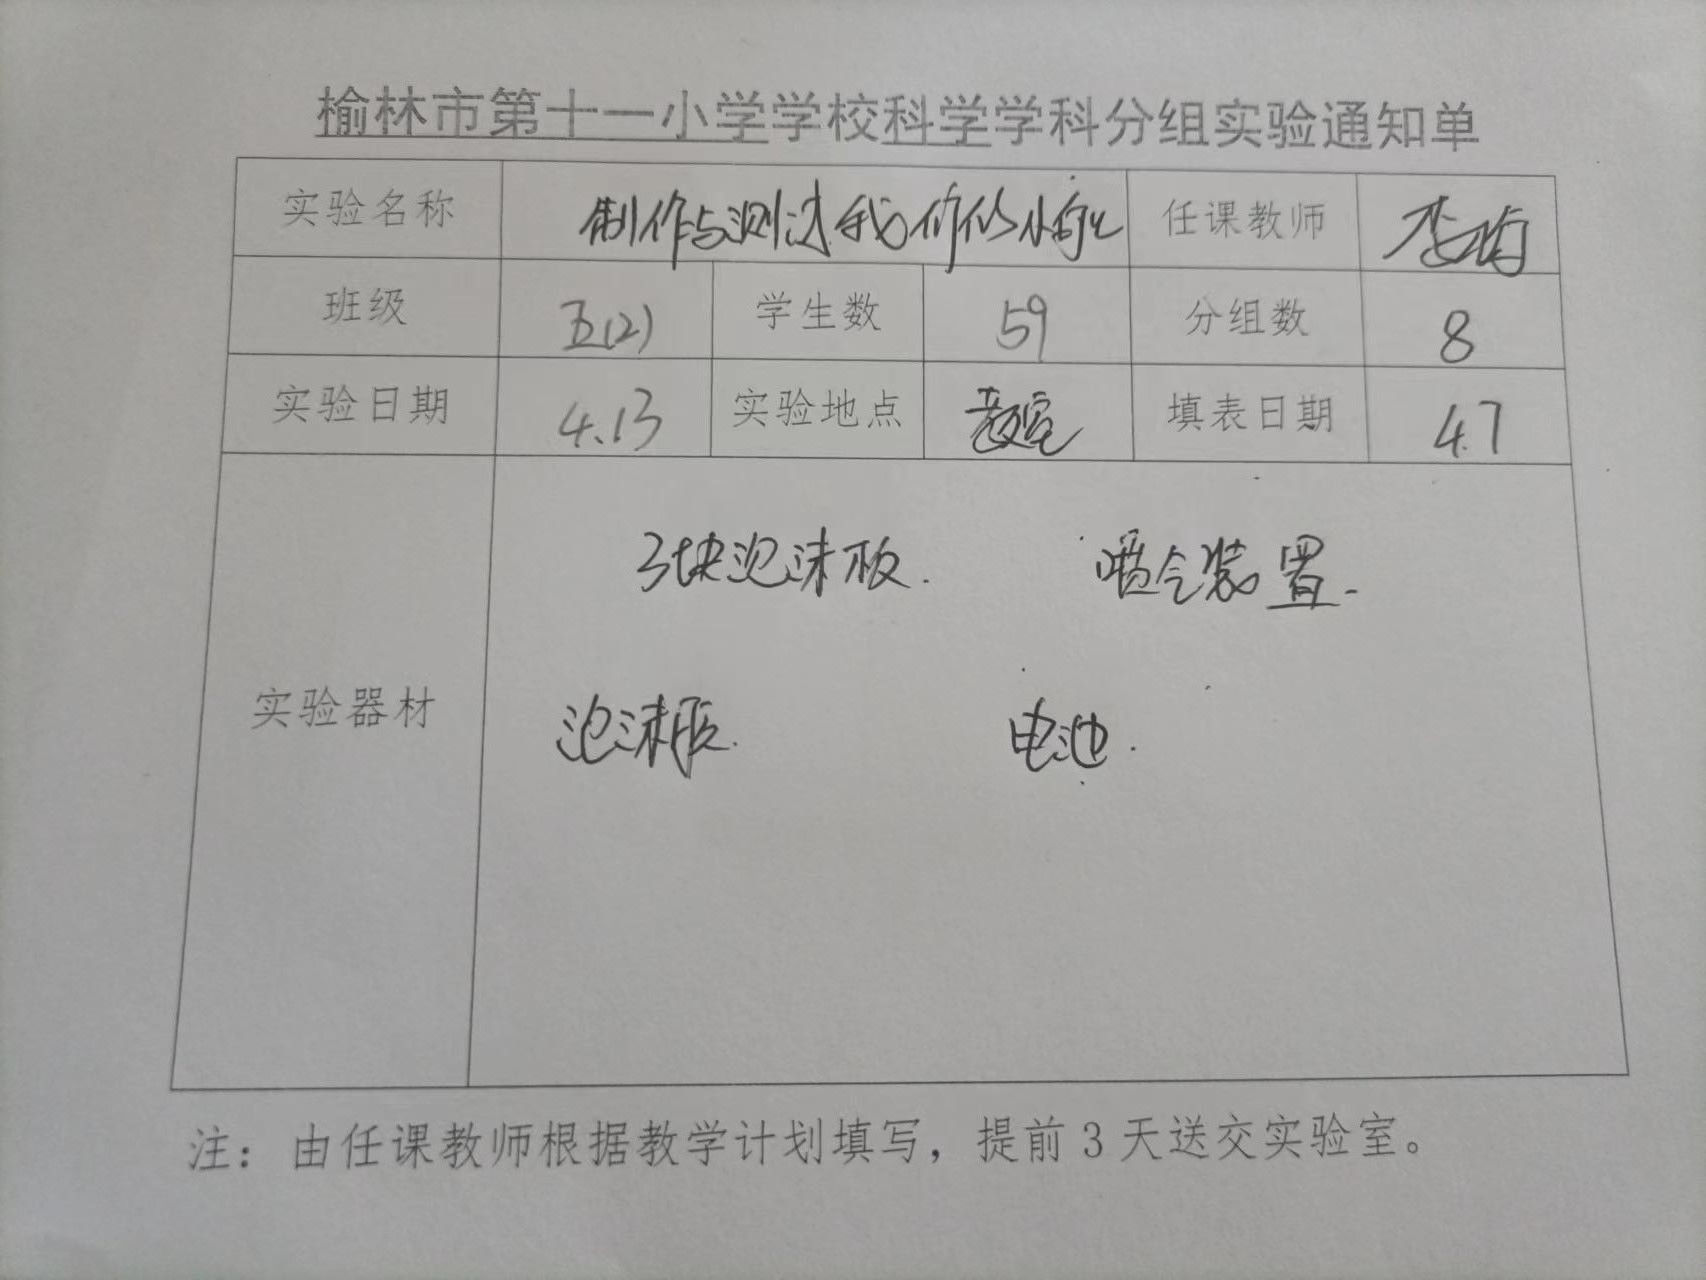 榆林市第十一小学学校科学学科分组实验通知单
实验名称 制作与测试我们的小船 任课教师
班级 五(2) 学生数 59 分组数 8
实验日期 4.13 实验地点 教室 填表日期 4.7
3块泡沫板. 喷气装置.
实验器材
泡沫胶. 电池.
注：由任课教师根据教学计划填写，提前3天送交实验室。